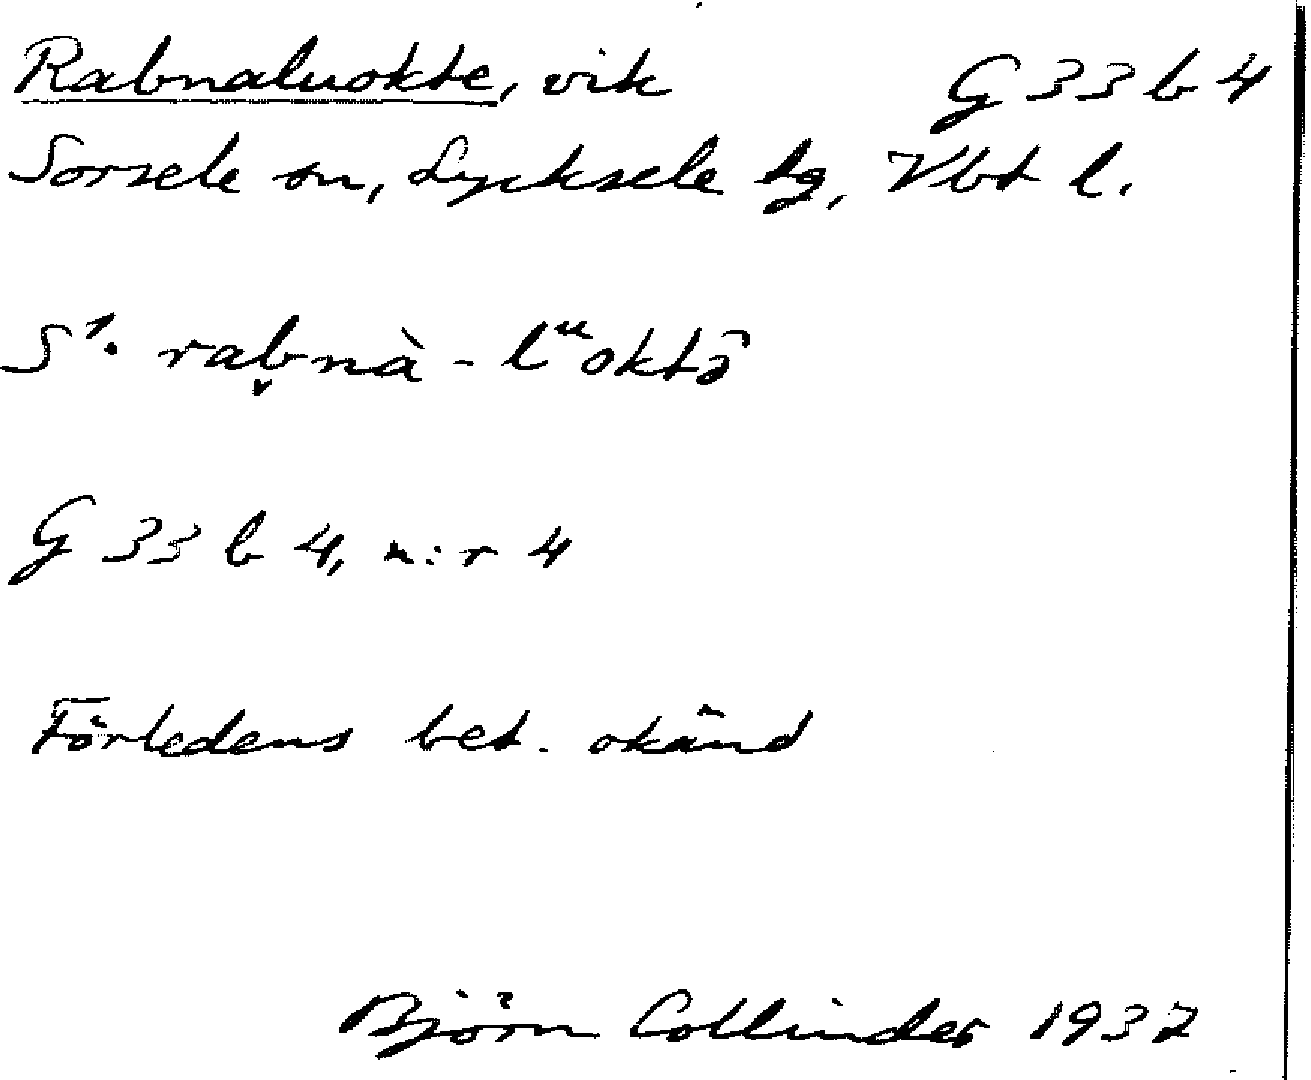 Rabnaluokte, vik G 33 b 4
Sorsele sn, Lycksele tg, Vbt l.
S1. rab̬nà - lᵘoktə̑
G 33 b 4, n:r 4
Förledens bet. okänd
Björn Collinder 1937